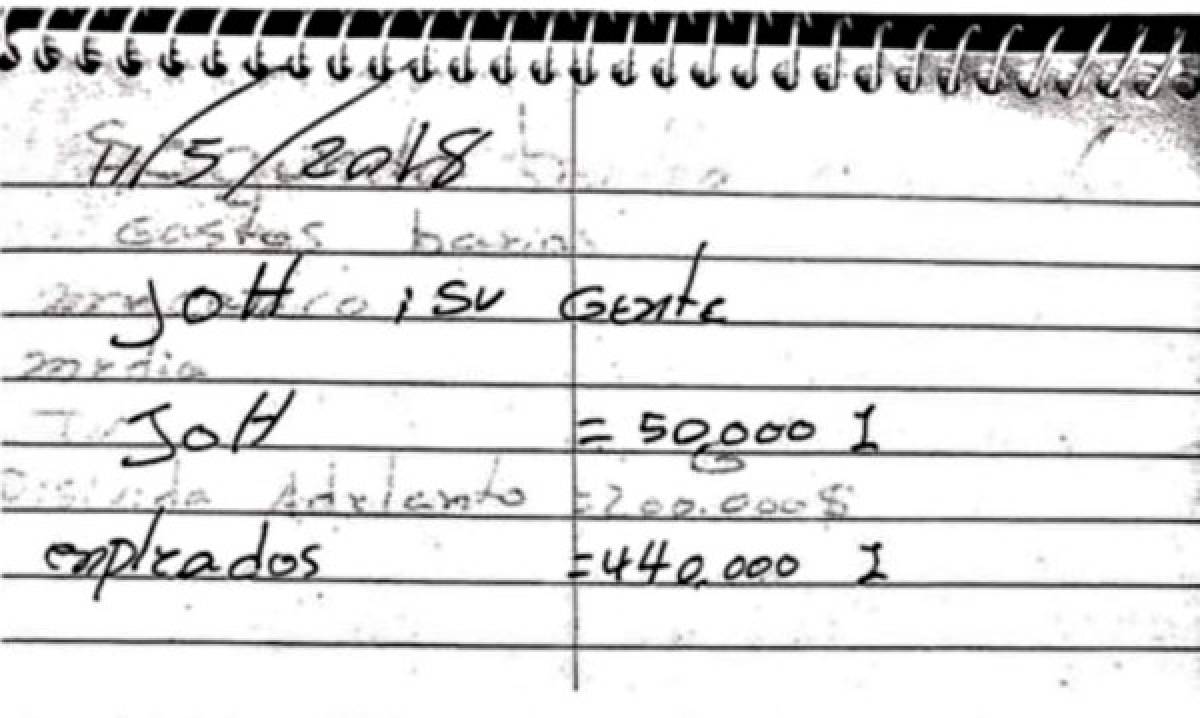 11/5/2018
Gastos
JOH i su Gente
media
JOH = 50,000 I
Adelanto = 200.000$
empleados = 440,000 I